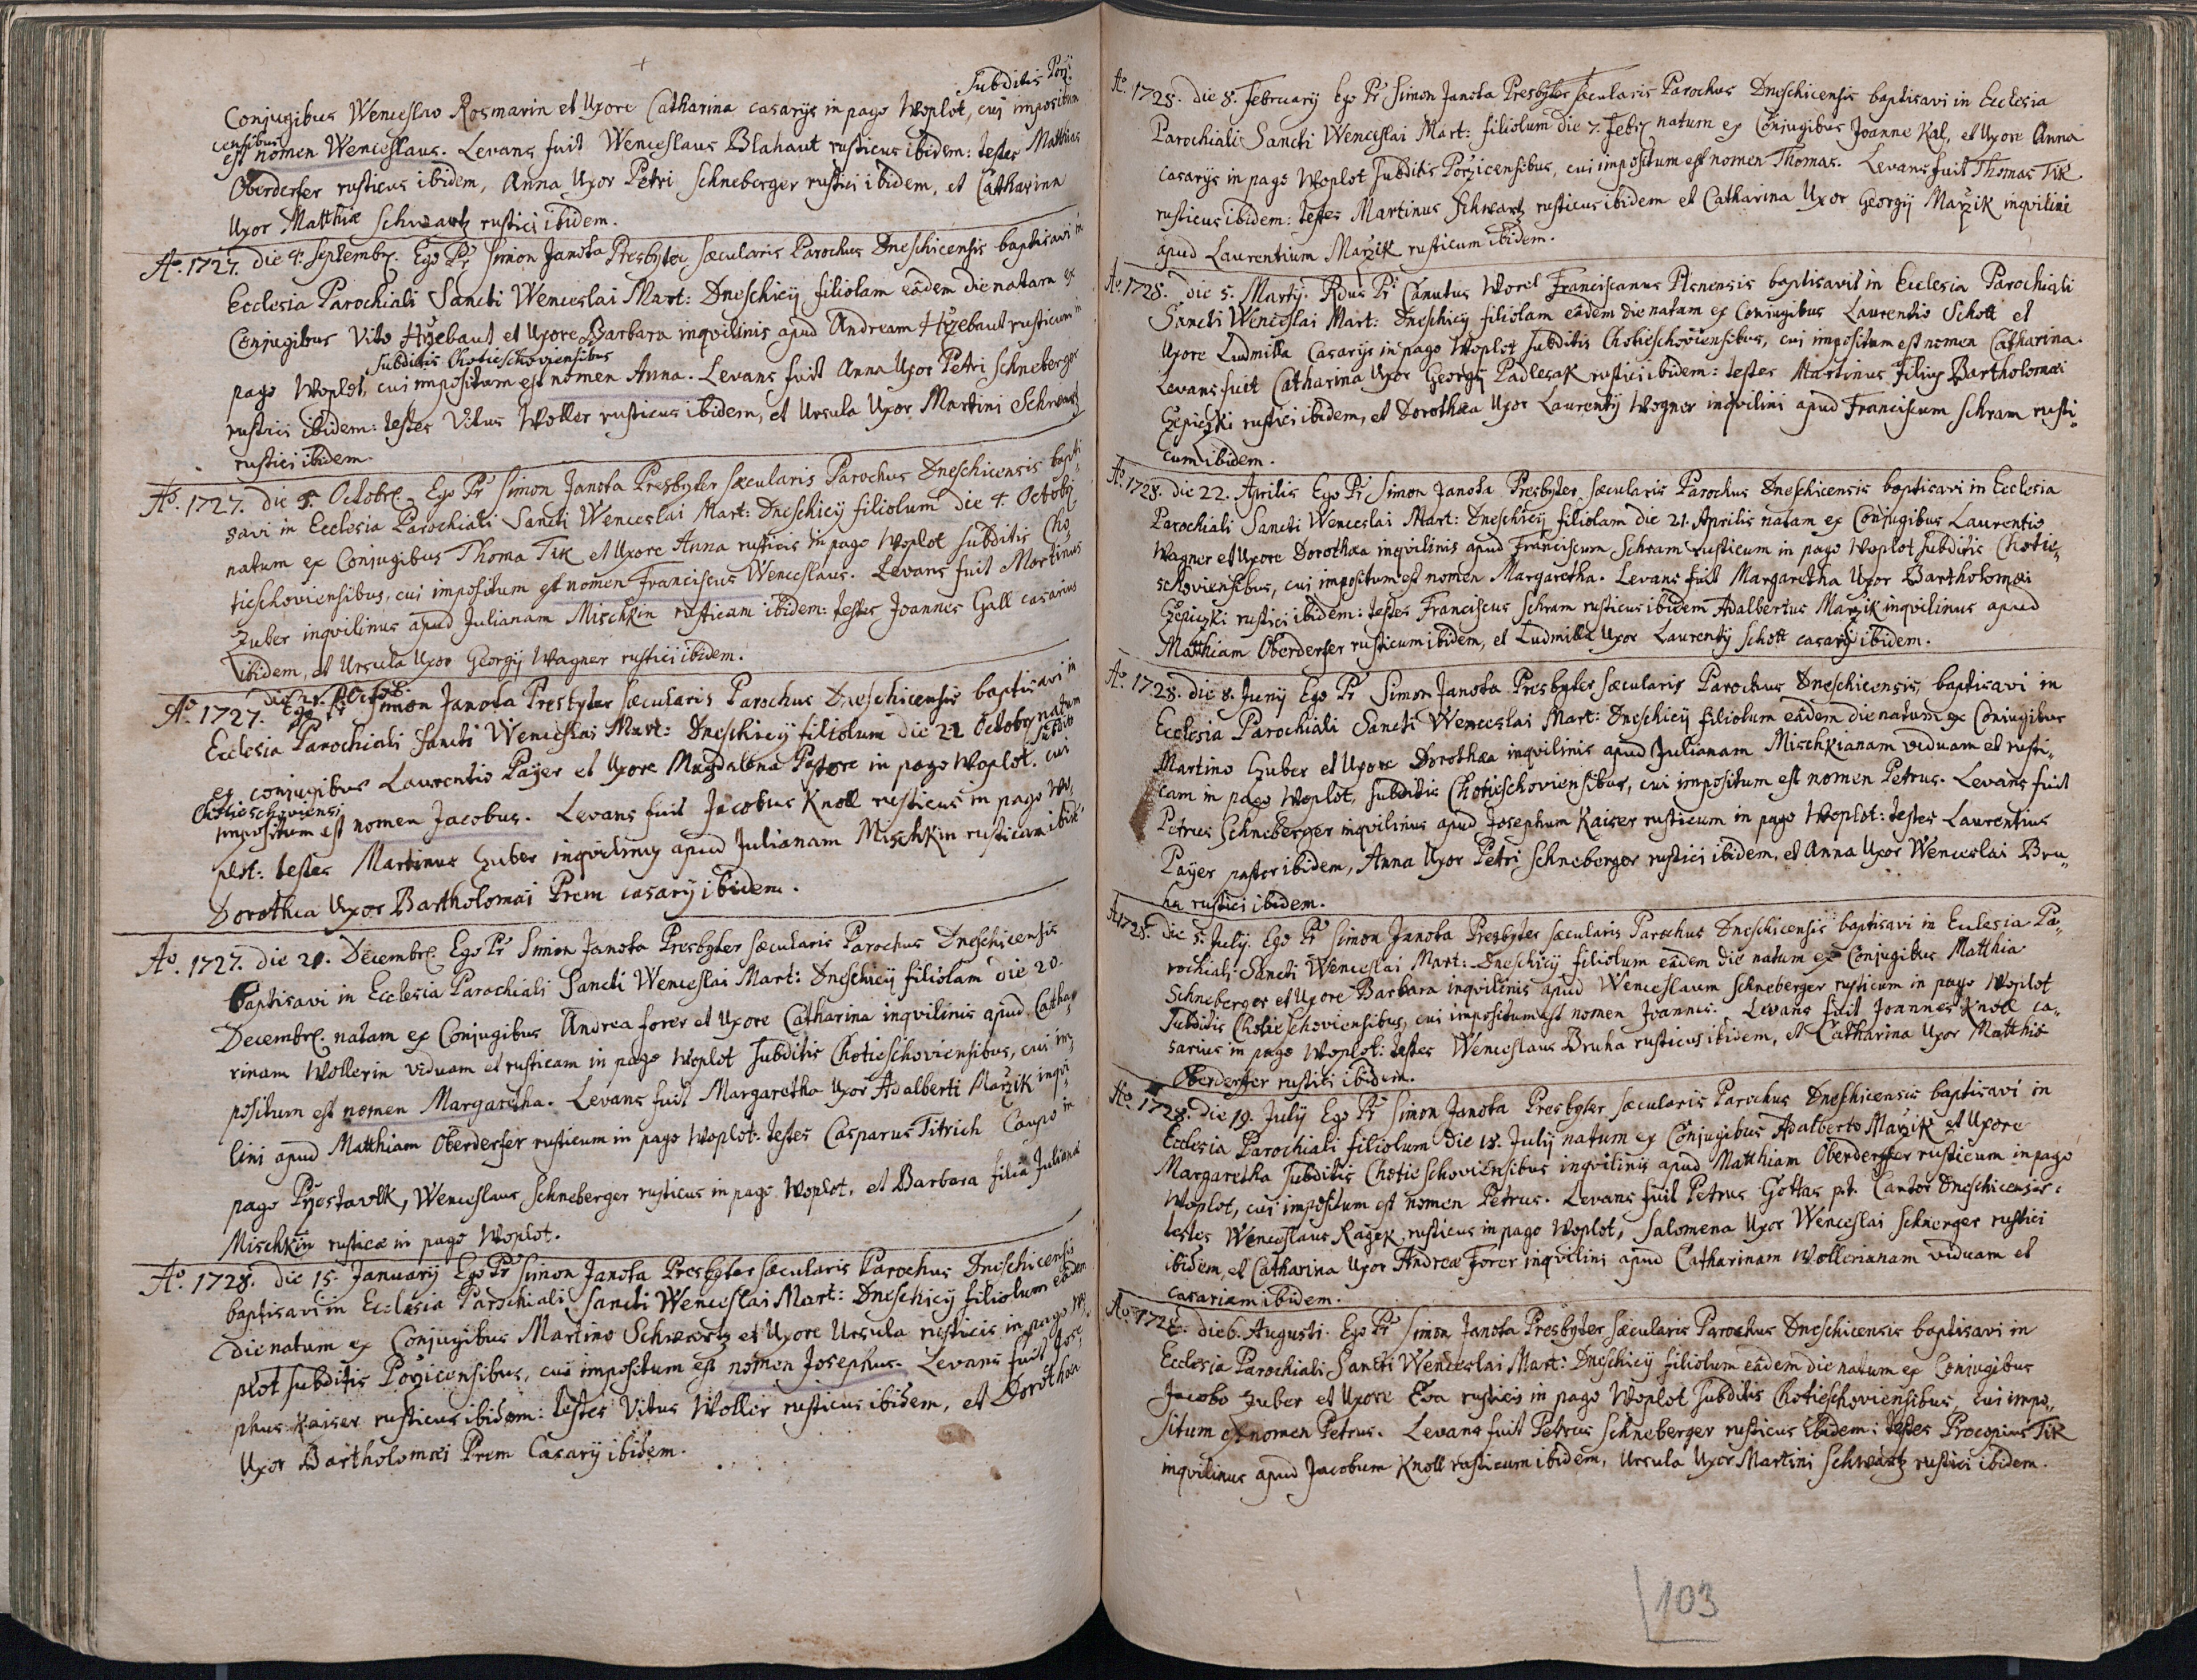 Subditis Porži
Conjugibus Wenceslao Rosmarin et Uxore Catharina casarijs in pago Woplot, cui impositum
censibus
est nomen Wenceslaus. Levans fuit Wenceslaus Blahaut rusticus ibidem: testes Matthias
Oberderfer rusticus ibidem, Anna Uxor Petri Schneberger rustici ibidem, et Catharina
Uxor Matthiæ Schwartz rustici ibidem.
Aº. 1727. die 4. Septembr. Ego Pr Simon Janota Presbyter sæcularis Parochus Dneschicensis baptisavi in
Ecclesia Parochiali Sancti Wenceslai Mart: Dneschicij filiolam eâdem die natam ex
Conjugibus Vito Hržebaut et Uxore Barbara inqvilinis apud Andream Hržebaut rusticum in
Subditis Chotieschoviensibus
pago Woplot, cui impositum est nomen Anna. Levans fuit Anna Uxor Petri Schneberger
rustici ibidem: testes Vitus Woller rusticus ibidem, et Ursula Uxor Martini Schwartz
rustici ibidem.
Aº. 1727. die 5. Octobr. Ego Pr Simon Janota Presbyter sæcularis Parochus Dneschicensis bapti
savi in Ecclesia Parochiali Sancti Wenceslai Mart: Dneschicij filiolum die 4. Octobr
natum ex Conjugibus Thoma Tik et Uxore Anna rusticis in pago Woplot subditis Cho
tieschoviensibus, cui impositum est nomen Franciscus Wenceslaus. Levans fuit Martinus
Zuber inqvilinus apud Julianam Mischkin rusticam ibidem: testes Joannes Gall casarius
ibidem, et Ursula Uxor Georgij Wagner rustici ibidem.
die 21. Octob.
Aº. 1727. Ego Pr Simon Janota Presbyter sæcularis Parochus Dneschicensis baptisavi in
Ecclesia Parochiali Sancti Wenceslai Mart: Dneschicij filiolum die 21 Octobr natum
ex conjugibus Laurentio Payer et Uxore Magdalena Pastore in pago Woplot. subdit
Chotieschoviensi cui
impositum est nomen Jacobus. Levans fuit Jacobus Knoll rusticus in pago Wo,
plot: testes Martinus Zuber inqvilinus apud Julianam Mischkin rusticam ibid
Dorothea Uxor Bartholomæi Prem casarij ibidem.
Aº. 1727. die 21. Decembr. Ego Pr Simon Janota Presbyter sæcularis Parochus Dneschicensis
baptisavi in Ecclesia Parochiali Sancti Wenceslai Mart: Dneschicij filiolam die 20.
Decembr. natam ex Conjugibus Andrea forer et Uxore Catharina inqvilinis apud Catha,
rinam Wollerin viduam et rusticam in pago Woplot Subditis Chotieschoviensibus, cui im,
positum est nomen Margaretha. Levans fuit Margaretha Uxor Adalberti Maržik inqvi
lini apud Matthiam Oberderfer rusticum in pago Woplot. testes Casparus Titrich Caupo in
pago Pržestavlk, Wenceslaus Schneberger rusticus in pago Woplot, et Barbara filia Julianæ
Mischkin rusticæ in pago Woplot.
Aº. 1728. die 15. Januarij Ego Pr Simon Janota Presbyter sæcularis Parochus Dneschicensis
baptisavi in Ecclesia Parochiali Sancti Wenceslai Mart: Dneschicij filiolum eâdem
die natum ex Conjugibus Martino Schwartz et Uxore Ursula rusticis in pago Wo
plot subditis Poržicensibus, cui impositum est nomen Josephus. Levans fuit Jose,
phus Kaiser rusticus ibidem: testes Vitus Woller rusticus ibidem, et Dorothea
Uxor Bartholomæi Prem Casarij ibidem.
Aº. 1728. die 8. february Ego Pr Simon Janota Presbyter sæcularis Parochus Dneschicensis baptisavi in Ecclesia
Parochiali Sancti Wenceslai Mart: filiolum die 7. febr natum ex Conjugibus Joanne Kal, et Uxore Anna
casarijs in pago Woplot Subditis Poržicensibus, cui impositum est nomen Thomas. Levans fuit Thomas Tik
rusticus ibidem: testes Martinus Schwartz rusticus ibidem et Catharina Uxor Georgij Maržik inqvilini
apud Laurentium Maržik rusticum ibidem.
Aº 1728. die 5. Martij. Rdus Pr Canutus Worel Franciscanus Plsnensis baptisavit in Ecclesia Parochiali
Sancti Wenceslai Mart: Dneschicij filiolam eâdem die natam ex Conjugibus Laurentio Schott et
Uxore Ludmilla Casarijs in pago Woplot Subditis Chotieschoviensibus, cui impositum est nomen Catharina.
Levans fuit Catharina Uxor Georgij Padlesak rustici ibidem: testes Martinus filius Bartholomæi
Czepiczki rustici ibidem, et Dorothea Uxor Laurentij Wogner inqvilini apud Franciscum Schram rusti,
cum ibidem.
Aº. 1728. die 22. Aprilis Ego Pr Simon Janota Presbyter sæcularis Parochus Dneschicensis baptisavi in Ecclesia
Parochiali Sancti Wenceslai Mart: Dneschicij filiolam die 21. Aprilis natam ex Conjugibus Laurentio
Wagner et Uxore Dorothæa inqvilinis apud Franciscum Schram rusticum in pago Woplot Subditis Chotie,,
schoviensibus, cui impositum est nomen Margaretha. Levans fuit Margaretha Uxor Bartholomæi
Czepiczki rustici ibidem: testes Franciscus Schram rusticus ibidem Adalbertus Maržik inqvilinus apud
Matthiam Oberderfer rusticum ibidem, et Ludmilla Uxor Laurentij Schott casarij ibidem.
Aº. 1728. die 8. Junij Ego Pr Simon Janota Presbyter sæcularis Parochus Dneschicensis, baptisavi in
Ecclesia Parochiali Sancti Wenceslai Mart: Dneschicij filiolum eâdem die natum ex Conjugibus
Martino Zuber et Uxore Dorothæa inqvilinis apud Julianam Mischkianam viduam et rusti,,
cam in pago Woplot, Subditis Chotieschoviensibus, cui impositum est nomen Petrus. Levans fuit
Petrus Schneberger inqvilinus apud Josephum Kaiser rusticum in pago Woplot: testes Laurentius
Payer pastor ibidem, Anna Uxor Petri Schneberger rustici ibidem, et Anna Uxor Wenceslai Bru,,
ha rustici ibidem.
Aº 1728. die 5. July. Ego Pr Simon Janota Presbyter sæcularis Parochus Dneschicensis baptisavi in Ecclesia Pa,,
rochiali Sancti Wenceslai Mart: Dneschicij filiolum eâdem die natum ex Conjugibus Matthia
Schneberger et Uxore Barbara inqvilinis apud Wenceslaum Schneberger rusticum in pago Woplot
Subditis Chotieschoviensibus, cui impositum est nomen Joannes. Levans fuit Joannes Knoll ca,,
sarius in pago Woplot: testes Wenceslaus Bruha rusticus ibidem, et Catharina Uxor Matthiæ
Oberderfer rustici ibidem.
Aº. 1728. die 19. July Ego Pr Simon Janota Presbyter sæcularis Parochus Dneschicensis baptisavi in
Ecclesia Parochiali filiolum die 18. July natum ex Conjugibus Adalberto Maržik et Uxore
Margaretha Subditis Chotieschoviensibus inqvilinis apud Matthiam Oberderfer rusticum in pago
Woplot, cui impositum est nomen Petrus. Levans fuit Petrus Gottas p.t. Cantor Dneschicensis:
testes Wenceslaus Ražek rusticus in pago Woplot, Salomena Uxor Wenceslai Schnerger rustici
ibidem, et Catharina Uxor Andreæ Forer inqvilini apud Catharinam Wollerianam viduam et
casariam ibidem.
Aº. 1728. die 6. Augusti. Ego Pr Simon Janota Presbyter sæcularis Parochus Dneschicensis baptisavi in
Ecclesia Parochiali Sancti Wenceslai Mart: Dneschicij filiolum eâdem die natum ex Conjugibus
Jacobo Zuber et Uxore Eva rusticis in pago Woplot Subditis Chotieschoviensibus, cui impo,,
situm est nomen Petrus. Levans fuit Petrus Schneberger rusticus ibidem: testes Procopius Tik
inqvilinus apud Jacobum Knoll rusticum ibidem, Ursula Uxor Martini Schwartz rustici ibidem.
103